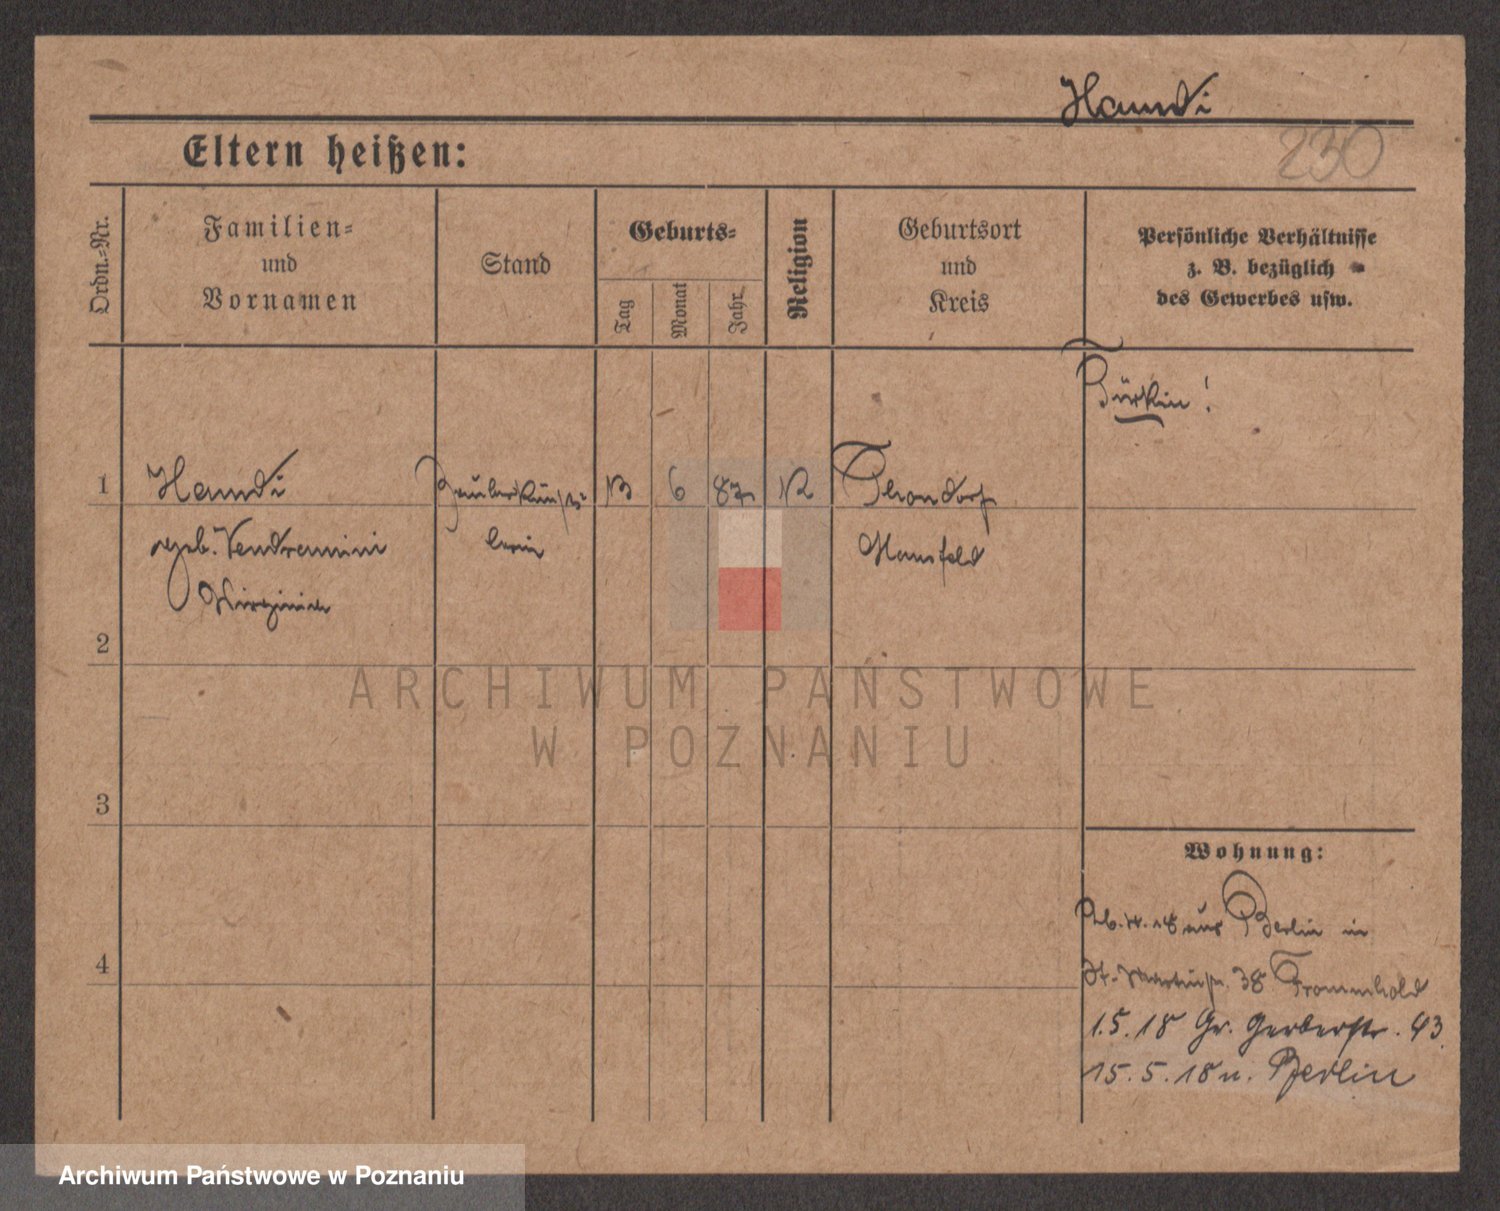 Hamdi
230
Eltern heißen:
Ordn.=Nr.
Familien=
und
Vornamen
Stand
Geburts=
Tag
Monat
Jahr
Religion
Geburtsort
und
Kreis
Persönliche Verhältnisse
z. B. bezüglich
des Gewerbes usw.
Türkin!
1
Hamdi
Zauberkünst
13
6
87
Thondorf
geb. Vendramini
lerin
Mansfeld
Virginia
2
ARCHIWUM PAŃSTWOWE
W POZNANIU
3
Wohnung:
18 aus Berlin in
4
St. Martinstr. 38 Frommhold
1.5.18 Gr. Gerberstr. 43.
15.5.18 n. Berlin
Archiwum Państwowe w Poznaniu